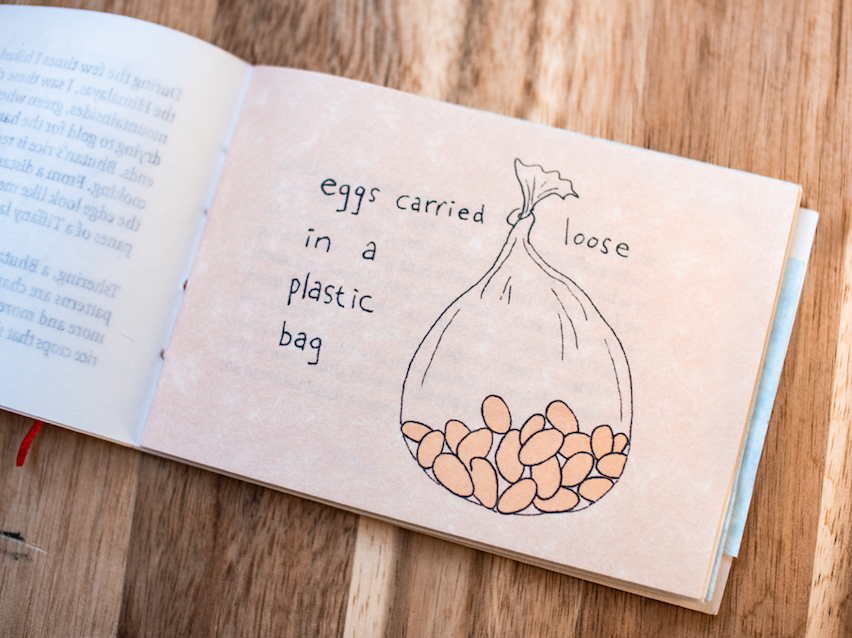 During the few times I hiked
the Himalayas, I saw these
mountainsides, green
drying to gold for the
ends. Bhutan's rice is
cooking. From a
the edge look like
panes of a Tiffany
Tshering, a
patterns are
more and more
rice crops that
eggs carried loose
in a
plastic
bag